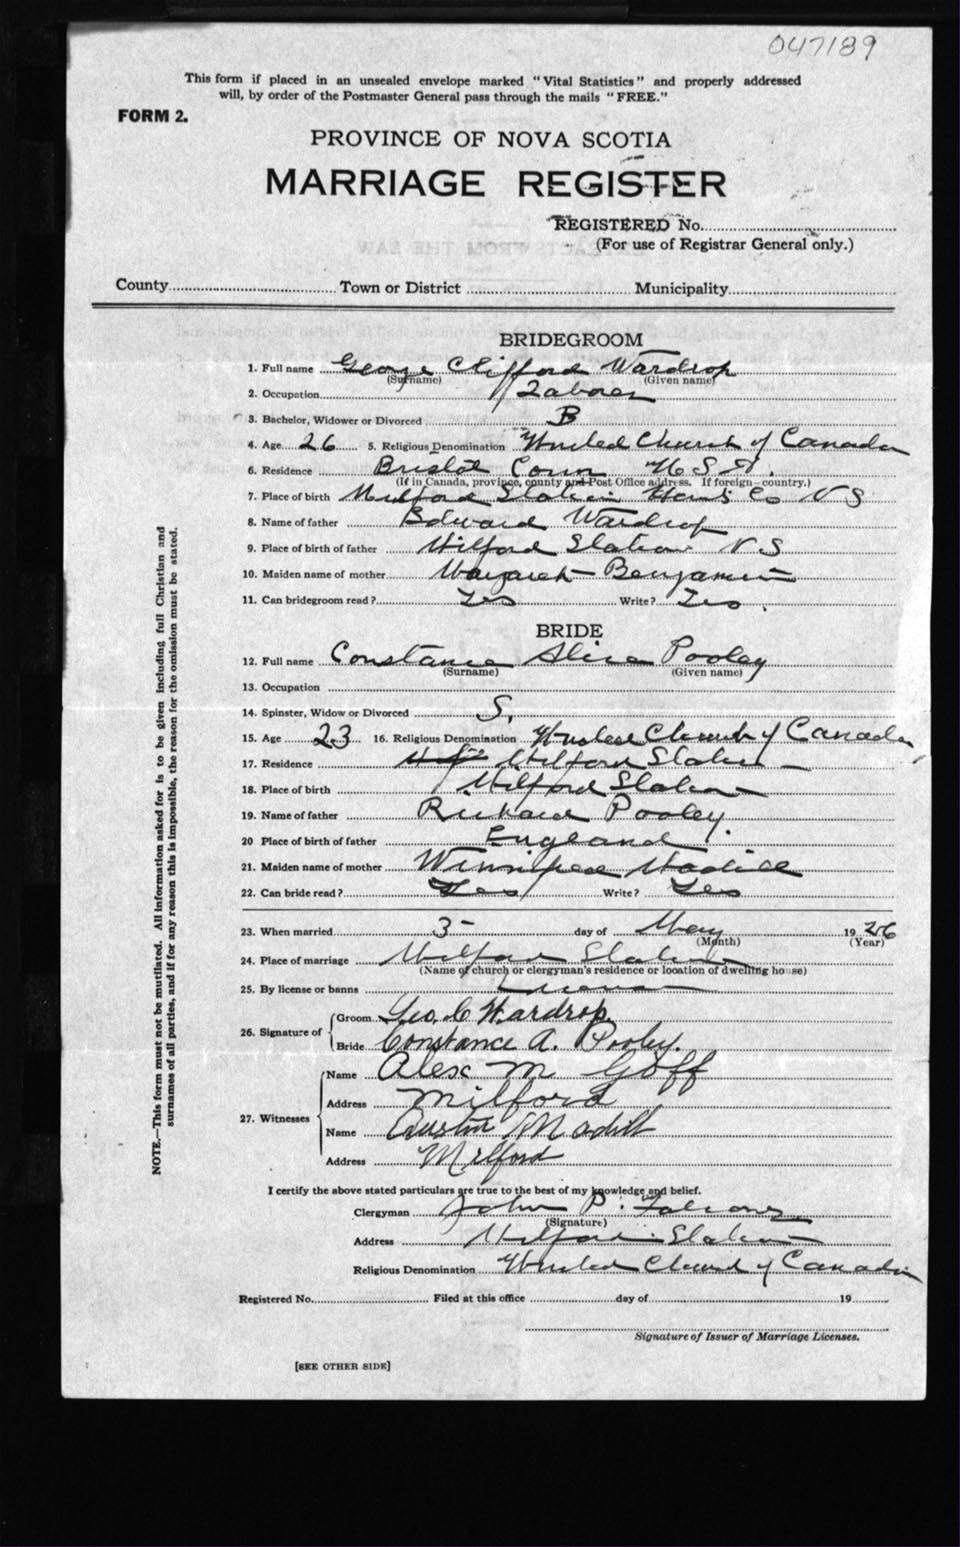 047189
This form if placed in an unsealed envelope marked "Vital Statistics" and properly addressed
will, by order of the Postmaster General pass through the mails "FREE."
FORM 2.
PROVINCE OF NOVA SCOTIA
MARRIAGE REGISTER
REGISTERED No.
(For use of Registrar General only.)
County Town or District Municipality
BRIDEGROOM
1. Full name George Clifford Wardrop
(Surname) (Given name)
2. Occupation Laborer
3. Bachelor, Widower or Divorced B
4. Age 26 5. Religious Denomination United Church of Canada
6. Residence Bristol Conn U.S.A.
(If in Canada, province, county and Post Office address. If foreign—country.)
7. Place of birth Milford Station Hants Co N S
8. Name of father Edward Wardrop
9. Place of birth of father Milford Station N S
10. Maiden name of mother Margaret Benjamin
11. Can bridegroom read? Yes Write? Yes.
BRIDE
12. Full name Constance Alice Pooley
(Surname) (Given name)
13. Occupation
14. Spinster, Widow or Divorced S.
15. Age 23 16. Religious Denomination United Church of Canada
17. Residence Milford Station
18. Place of birth Milford Station
19. Name of father Richard Pooley.
20 Place of birth of father England
21. Maiden name of mother Winnifred Madill
22. Can bride read? Yes Write? Yes
23. When married 3 day of May 1926
(Month) (Year)
24. Place of marriage Milford Station
(Name of church or clergyman's residence or location of dwelling house)
25. By license or banns License
26. Signature of Groom Geo. C Wardrop.
Bride Constance A. Pooley.
27. Witnesses Name Alex M Goff
Address Milford
Name Austin Madill
Address Milford
I certify the above stated particulars are true to the best of my knowledge and belief.
Clergyman John P.
(Signature)
Address Milford Station
Religious Denomination United Church of Canada
Registered No. Filed at this office day of 19
Signature of Issuer of Marriage Licenses.
[SEE OTHER SIDE]
NOTE.—This form must not be mutilated. All information asked for is to be given including full Christian and
surnames of all parties, and if for any reason this is impossible, the reason for the omission must be stated.